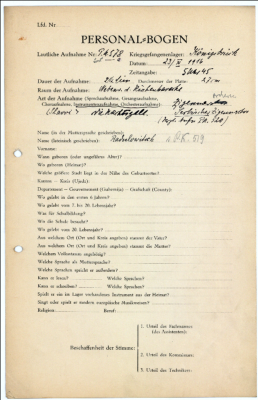 Lfd. Nr.
PERSONAL-BOGEN
Lautliche Aufnahme Nr. PK 578
Kriegsgefangenenlager: Königsbrück
Datum: 23/V 1916
Zeitangabe: 5 Uhr 45
Dauer der Aufnahme: 2½ Min
Durchmesser der Platte: 27 cm
Raum der Aufnahme:
Art der Aufnahme (Sprechaufnahme, Gesangsaufnahme,
Choraufnahme, Instrumentenaufnahme, Orchesteraufnahme):
Name (in der Muttersprache geschrieben):
Name (lateinisch geschrieben): Radulowitsch
Vorname:
Wann geboren (oder ungefähres Alter)?
Wo geboren (Heimat)?
Welche größere Stadt liegt in der Nähe des Geburtsortes?
Kanton — Kreis (Ujedz)
Departement — Gouvernement (Gubernija) — Grafschaft (County)
Wo gelebt in den ersten 6 Jahren?
Wo gelebt vom 7. bis 20. Lebensjahr?
Was für Schulbildung?
Wo die Schule besucht?
Wo gelebt vom 20. Lebensjahr?
Aus welchem Ort (Ort und Kreis angeben) stammt der Vater?
Aus welchem Ort (Ort und Kreis angeben) stammt die Mutter?
Welchem Volksstamm angehörig?
Welche Sprache als Muttersprache?
Welche Sprachen spricht er außerdem?
Kann er lesen? Welche Sprachen?
Kann er schreiben? Welche Sprachen?
Spielt er ein im Lager vorhandenes Instrument aus der Heimat?
Singt oder spielt er moderne europäische Musikweisen?
Religion: Beruf:
Beschaffenheit der Stimme:
1. Urteil des Fachmannes
(des Assistenten):
2. Urteil des Kommissars:
3. Urteil des Technikers: